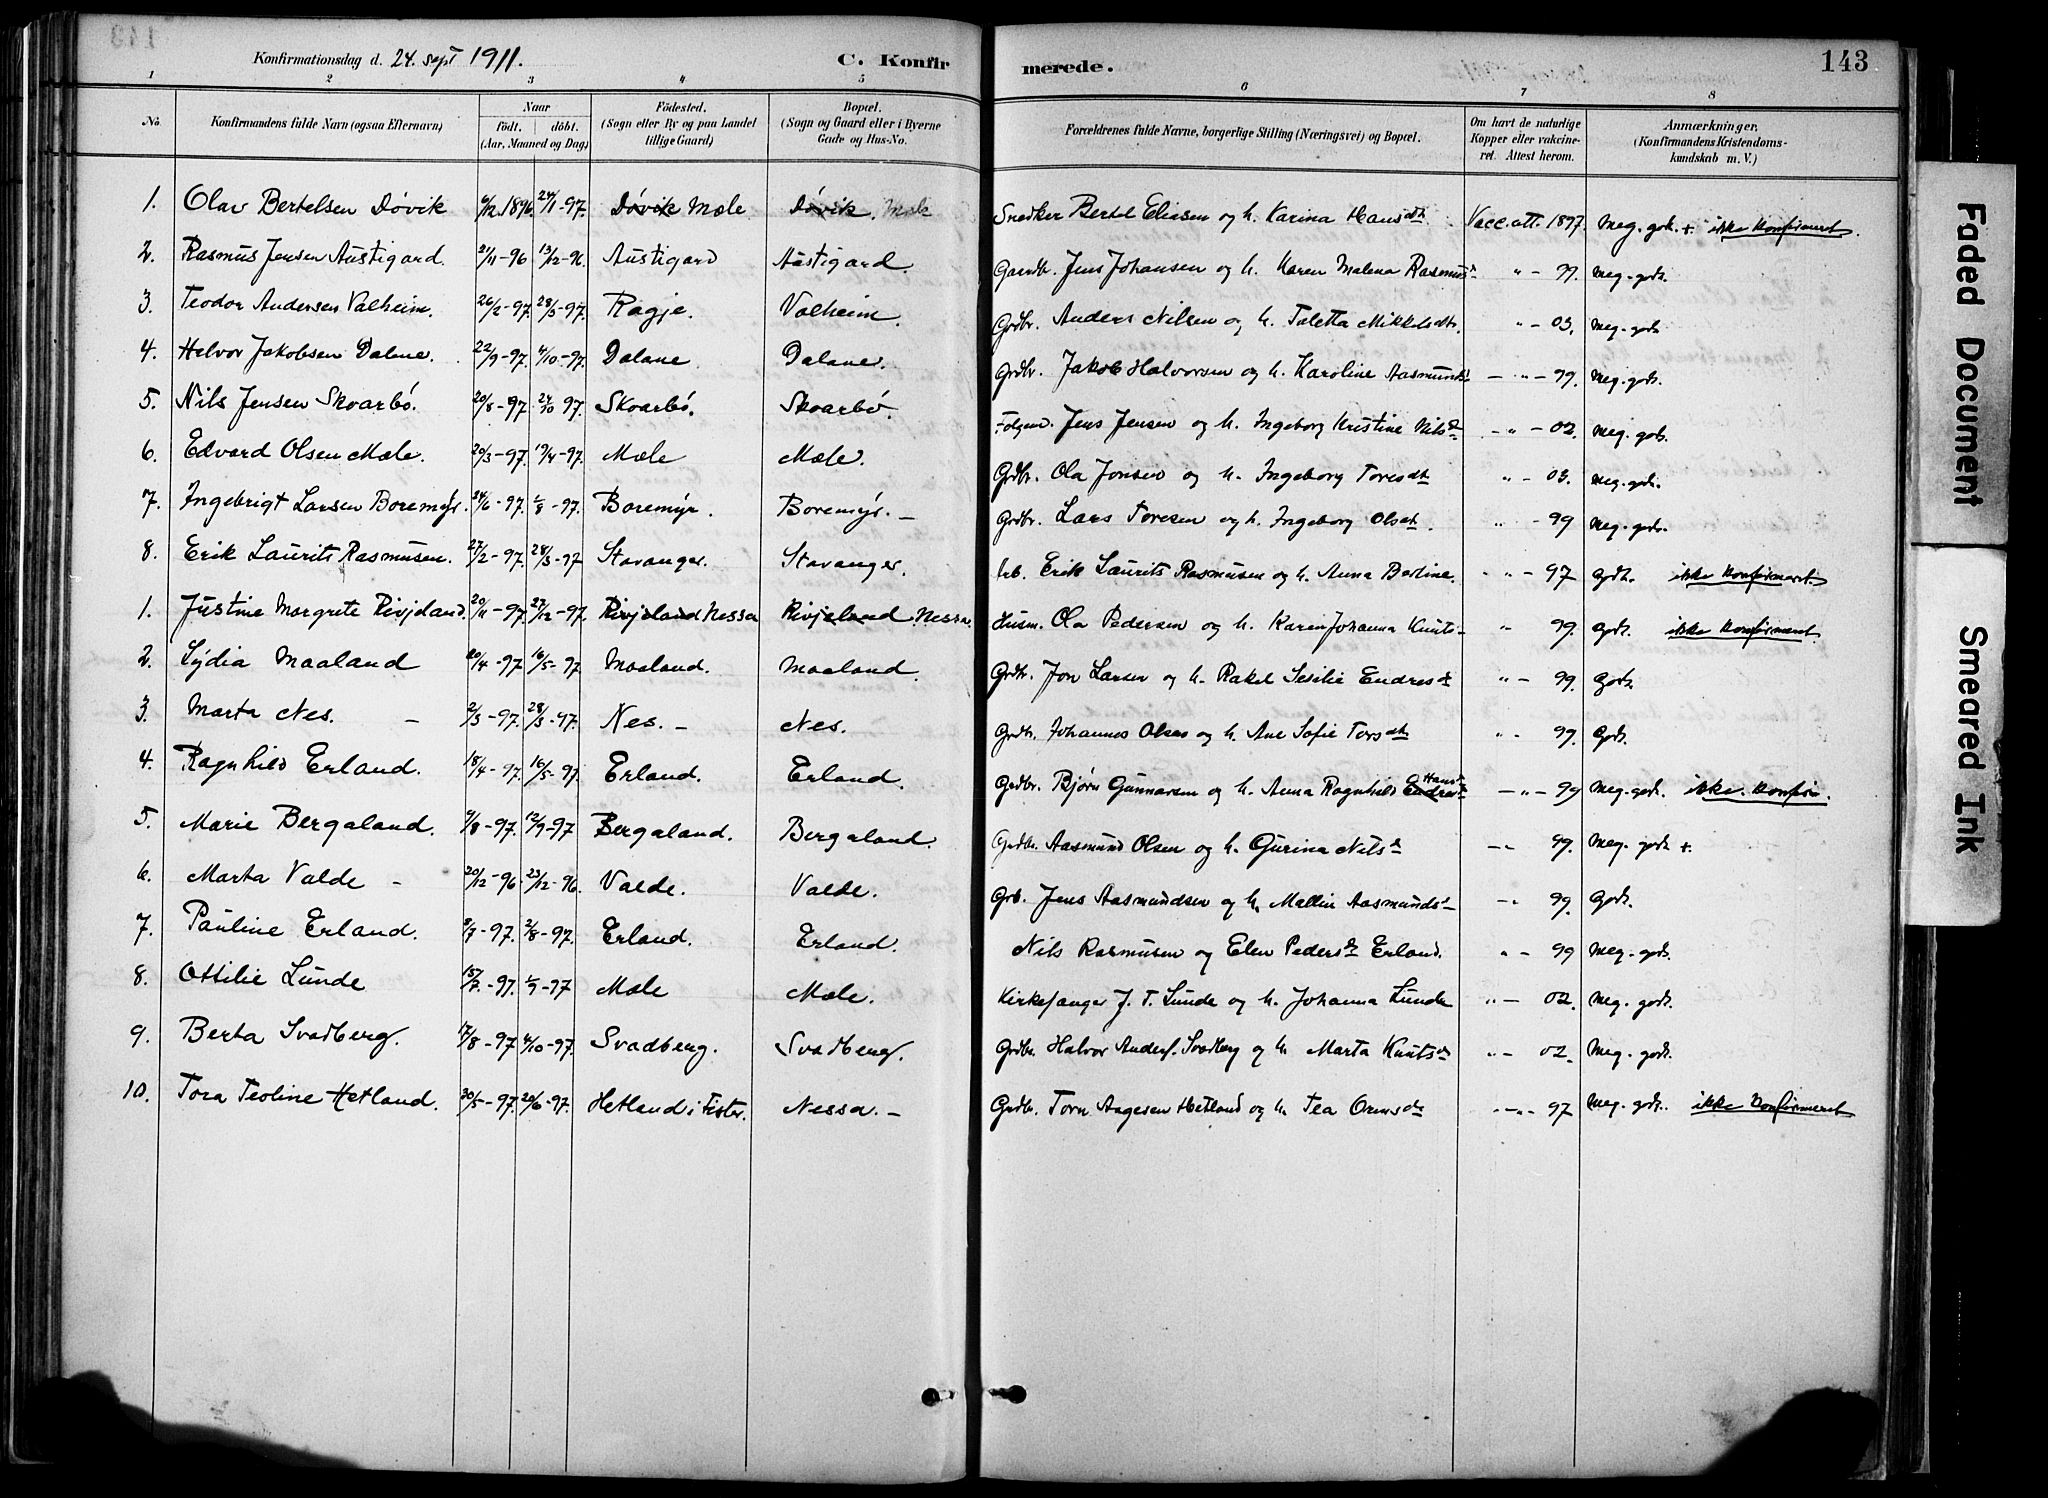 Konfirmationsdag d. 24. sept 1911.
C. Konfirmerede.
143
1 2 3 4 5 6 7 8
No. Konfirmandens fulde Navn (ogsaa Efternavn) Naar født. døbt. (Aar, Maaned og Dag) Fødested. (Sogn eller By og paa Landet tillige Gaard) Bopæl. (Sogn og Gaard eller i Byerne Gade og Hus-No. Forældrenes fulde Navne, borgerlige Stilling (Næringsvei) og Bopæl. Om havt de naturlige Kopper eller vakcineret. Attest herom. Anmærkninger. (Konfirmandens Kristendomskundskab m. V.)
1. Olav Bertelsen Døvik 6/12 1896. 24/1-97. Døvik Mæle Døvik. Mæle Snedker Bertel Eliasen og h. Karina Hansdt. Vacc. att. 1897. Meg. godt. + ikke konfirmert.
2. Rasmus Jensen Austigard. 21/11-96 13/12-96. Austigard Austigard. Gardbr. Jens Johansen og h. Karen Malena Rasmusdt " - 97. Meg. godt.
3. Teodor Andersen Valheim. 26/2-97. 28/3-97. Ragje. Valheim. Grdbr. Anders Nilsen og h. Taletta Mikkelsdt. " - 03. Meg. godt.
4. Halvor Jakobsen Dalane. 22/9-97. 4/10-97. Dalane. Dalane. Grdbr. Jakob Halvorsen og h. Karoline Aasmundsd - " - 99. Meg. godt.
5. Nils Jensen Skvarbø. 20/8-97. 24/10-97. Skvarbø. Skvarbø. Jens Jensen og h. Ingeborg Kristine Nilsdt - " - 02. Meg. godt.
6. Edvard Olsen Mæle. 20/3-97. 19/4-97. Mæle Mæle. Grdbr. Ola Jonsen og h. Ingeborg Toresdt " - 03. Meg. godt.
7. Ingebrigt Larsen Boremyr. 24/6-97. 1/8-97. Boremyr. Boremyr. - Grdbr. Lars Toresen og h. Ingeborg Olsdt. " - 99 Meg. godt.
8. Erik Laurits Rasmusen. 27/2-97. 28/3-97 Stavanger. Stavanger. Arb. Erik Laurits Rasmusen og h. Anna Bertine. " " - 97 Godt. ikke konfirmeret
1. Justine Margrete Rivjeland. 20/11-97. 27/12-97. Rivjeland Nessa Rivjeland Nessa. Husm. Ola Pedersen og h. Karen Johanna Knuts- " 99. Godt. ikke konfirmeret
2. Lydia Maaland 20/4-97. 16/5-97 Maaland. Maaland. Grdbr. Jon Larsen og h. Rakel Sesilie Endresdt " - 99. Godt.
3. Marta Nes. - 2/3-97. 28/3-97. Nes. - Nes. Grdbr. Johannes Olsen og h. Ane Sofie Torsdt " - 97. Godt.
4. Ragnhild Erland. 18/4-97. 16/5-97. Erland. Erland. Grdbr. Bjørn Gunnarsen og h. Anna Ragnhild Endresdt Hansdt - " - 99 Meg. godt. ikke konfirm.
5. Marie Bergaland. 9/8-97. 12/9-97 Bergaland. Bergaland. Grdbr. Aasmund Olsen og h. Gurina Nilsdt - " 99. Meg. godt +.
6. Marta Valde - 20/12-96. 23/12-96. Valde. Valde. Grb. Jens Aasmundsen og h. Mallin Aasmunds- - " 99. Godt.
7. Pauline Erland. 8/7-97. 2/8-97. Erland. Erland. Nils Rasmusen og Elen Pedersdt Erland. " - 99 Meg. godt.
8. Ottilie Lunde 15/7-97. 1/9-97 Mæle Mæle. Kirkesanger J. T. Lunde og h. Johanna Lunde " - 02. Meg. godt.
9. Berta Svadberg. 17/8-97. 4/10-97. Svadberg. Svadberg. Grdbr. Halvor Anders. Svadberg og h. Marta Knutsdt " - 02. Meg. godt.
10. Tora Teoline Hetland. 30/5-97. 20/6-97. Hetland i Fister. Nessa. - Grdbr. Torn Aagesen Hetland og h. Tea Ormsdt - " - 97 Meg. godt. ikke konfirmeret
Faded Document
Smeared Ink